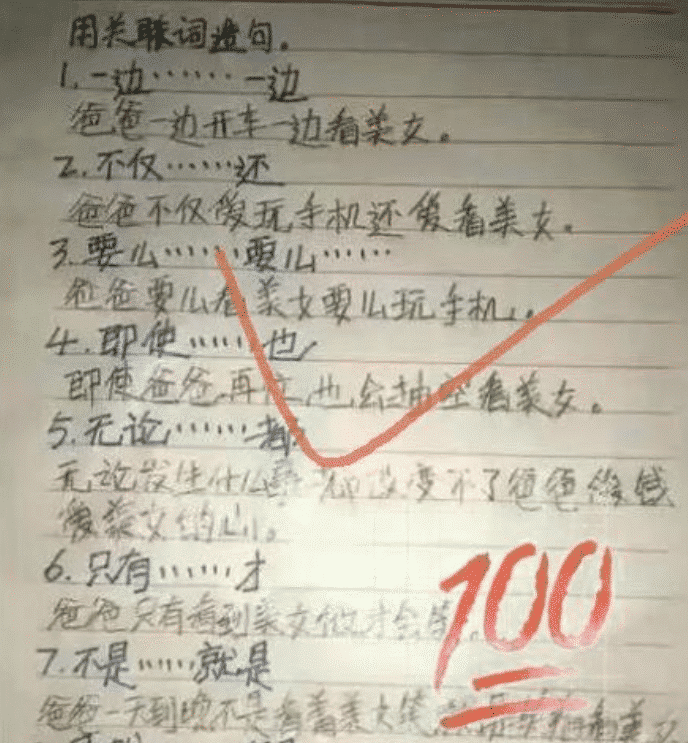 用关联词造句。
1.一边……一边
爸爸一边开车一边看美女。
2.不仅……还
爸爸不仅爱玩手机还爱看美女。
3.要么……要么……
爸爸要么看美女要么玩手机。
4.即使……也
即使爸爸再忙也会抽空看美女。
5.无论……都
无论发生什么事都改变不了爸爸爱钱
爱美女的心。
6.只有……才
爸爸只有看到美女他才会笑。
100
7.不是……就是
爸爸一天到晚不是看着美女笑就是